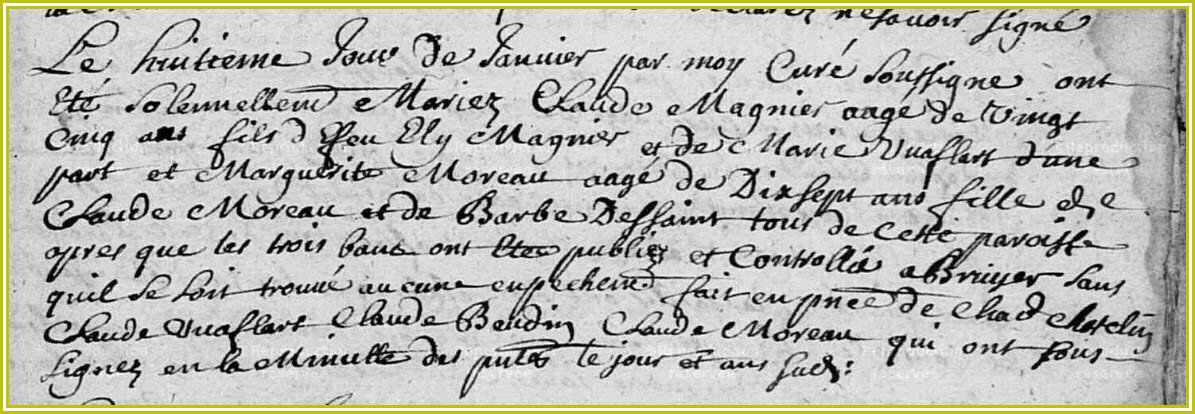 ne savoir signé
Le huitieme Jour De Janvier par moy Curé soussigne ont
Eté solennellemt Mariez Claude Magnier aage de vingt
Cinq ans fils d feu Ely Magnier et de Marie Vuaflart d'une
part et Marguerite Moreau aage de Dix sept ans fille de
Claude Moreau et de Barbe Dessaint tous de Cette paroisse
apres que les trois bans ont Etée publiez et Controllée a Bruyer sans
quil se soit trouvé aucune enpechemt fait en pnce de Claude Vuaflart Claude Beudin Claude Moreau qui ont sous-
signez en la Minutte des pntes le jour et ans susd: